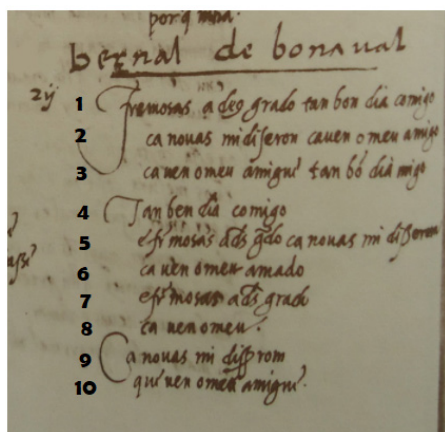 porq mha.
bernal de bonaual
2ij
1 Fremosas a deos grado tan bon dia comigo
2 ca nouas mi diseron ca uen o meu amigo
3 ca uen o meu amigui tan bō dia migo
4 Tan ben dia comigo
5 e fr̄mosas a ds̄ gdo ca nouas mi diseron
6 ca uen o meu amado
7 e fr̄mosas a ds̄ grado
8 ca uen o meu.
9 Ca nouas mi disserom
10 que uen o meu amigui.